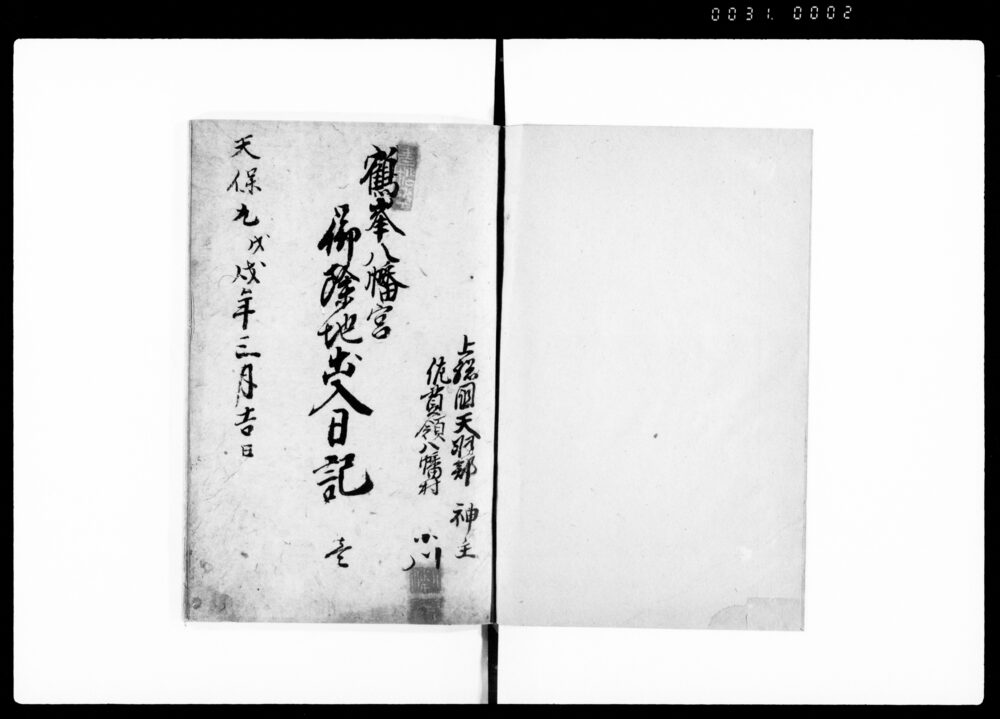 0031. 0002
上総国天羽郡 神主
佐貫領八幡村 小川
鶴峯八幡宮
御除地出入日記 壱
天保九戊戌年三月吉日